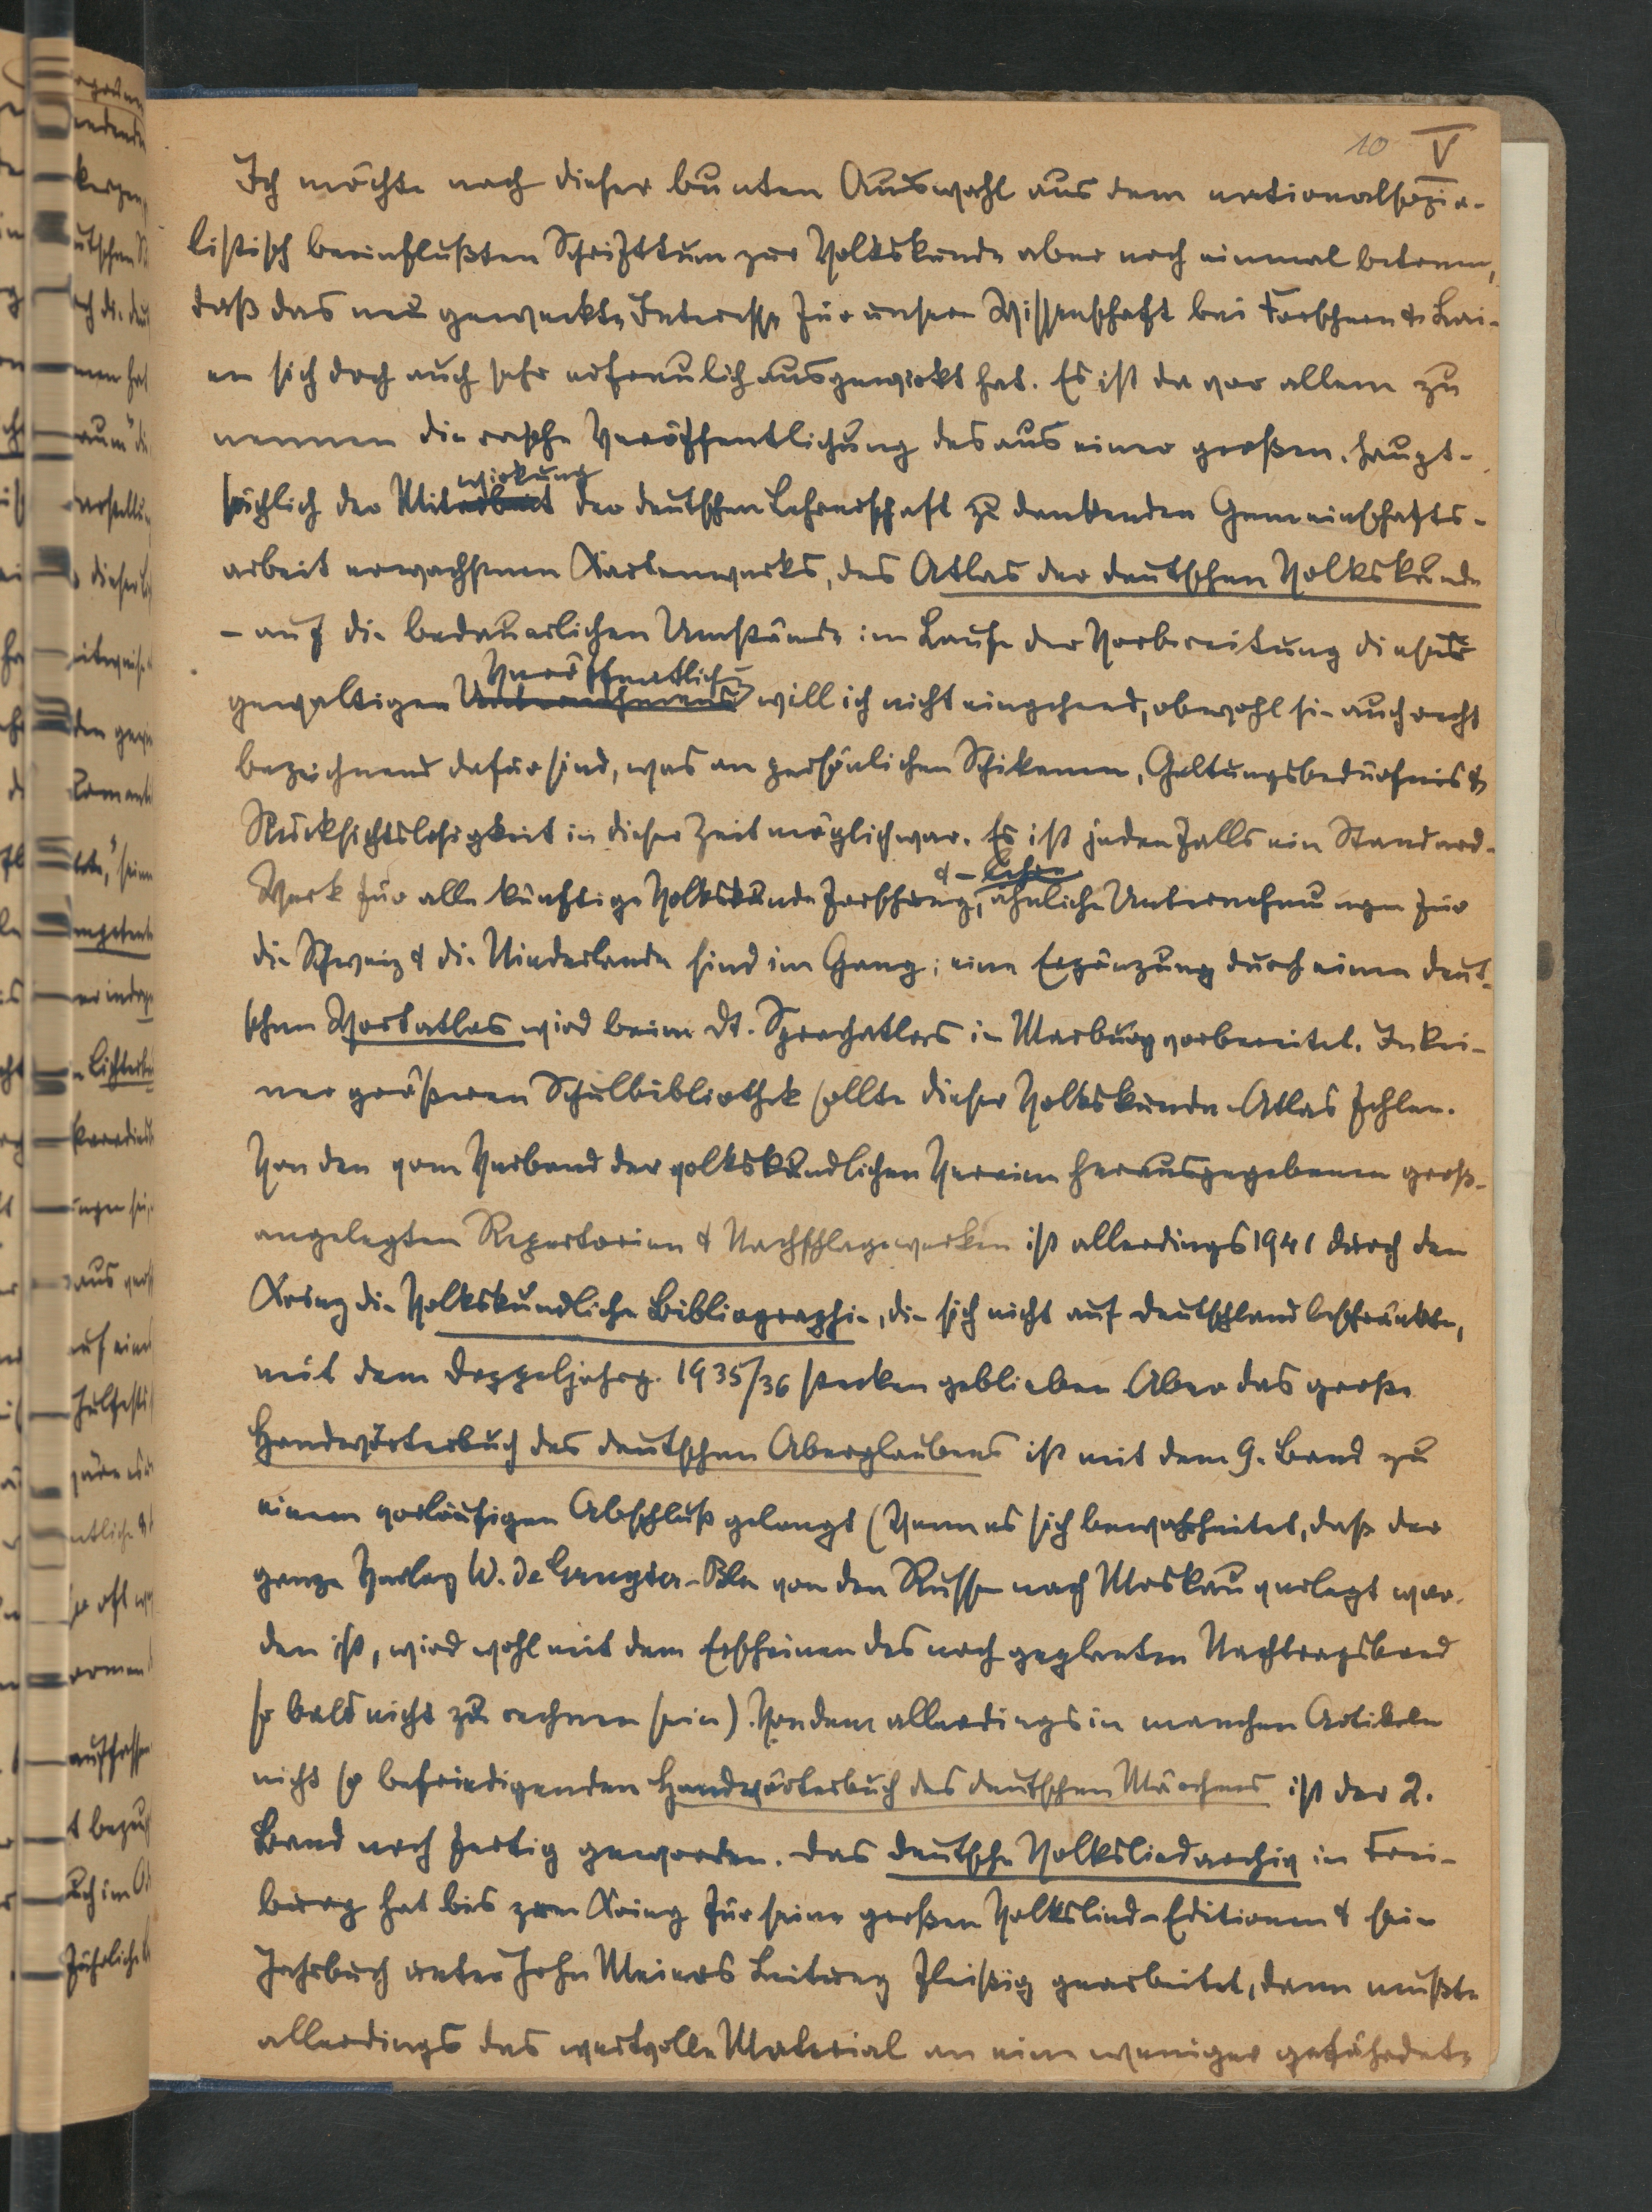 10 V
Ich möchte nach dieser bunten Auswahl aus dem nationalsozia-
listisch beeinflußten Schrifttum zur Volkskunde aber noch einmal betonen,
daß das neu geweckte Interesse für unsere Wissenschaft bei Forschern & Lai-
en sich doch auch sehr erfreulich ausgewirkt hat. Es ist da vor allem zu
nennen die rasche Veröffentlichung des aus einer großen, haupt-
wirkung
sächlich der Mitarbeit der deutschen Lehrerschaft zu dankenden Gemeinschafts-
arbeit erwachsenen Kartenwerks, des Atlas der deutschen Volkskunde
– auf die bedauerlichen Umstände im Laufe der Vorbereitung dieser
Veröffentlich-
gewaltigen Unternehmens will ich nicht eingehend, obwohl sie auch recht
bezeichnend dafür sind, was an persönlichen Schikanen, Geltungsbedürfnis &
Rücksichtslosigkeit in dieser Zeit möglich war. Es ist jedenfalls ein Standard-
& – Lehre
Werk für alle künftige Volkskunde Forschung, ähnliche Unternehmungen für
die Schweiz & die Niederlande sind im Gang; eine Ergänzung durch einen deut-
schen Wortatlas wird beim Dt. Sprachatlas in Marburg vorbereitet. In kei-
ner größeren Schulbibliothek sollte dieser Volkskunde-Atlas fehlen.
Von den vom Verband der volkskundlichen Vereine herausgegebenen groß-
angelegten Repertorien & Nachschlagewerken ist allerdings 1941 durch den
Krieg die Volkskundliche Bibliographie, die sich nicht auf Deutschland beschränkte,
mit dem Doppeljahrg. 1935/36 stecken geblieben. Aber das große
Handwörterbuch des deutschen Aberglaubens ist mit dem 9. Band zu
einem vorläufigen Abschluß gelangt (Wenn es sich bewahrheitet, daß der
ganze Verlag W. de Gruyter-Bln von den Russen nach Moskau verlegt wor-
den ist, wird wohl mit dem Erscheinen des noch geplanten Nachtragsband
so bald nicht zu rechnen sein). Von dem allerdings in manchen Artikeln
nicht so befriedigenden Handwörterbuch des deutschen Märchens ist der 2.
Band noch fertig geworden. Das deutsche Volksliedarchiv in Frei-
burg hat bis zum Krieg für seine großen Volkslied-Editionen & sein
Jahrbuch unter John Meiers Leitung fleißig gearbeitet, dann mußte
allerdings das wertvolle Material an eine weniger gefährdete